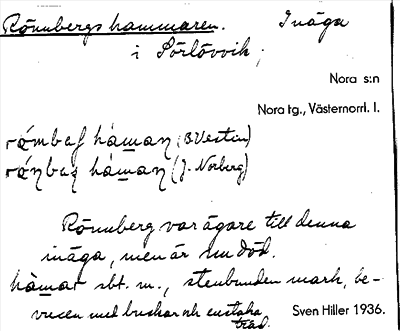 Rönnbergshammaren. Inäga
i Sörlövvik,
Nora s:n
Nora tg., Västernorrl. l.
(B. Vestin)
(J. Norberg)
Rönnberg var ägare till denna
inäga, men är nu död.
hàmar sbt. m., stenbunden mark, be-
vuxen med buskar och enstaka
träd.
Sven Hiller 1936.